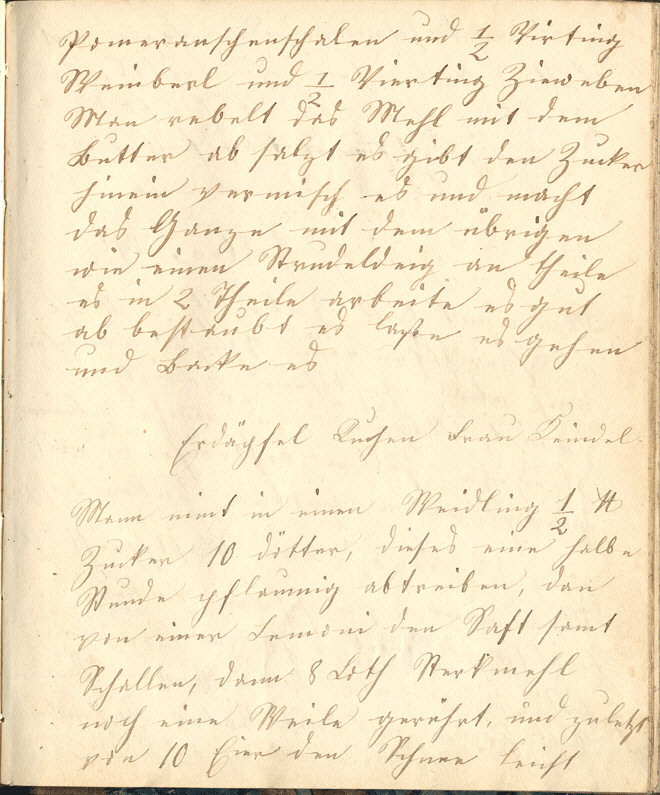 Pomeranschenschalen und 1/2 Virting
Weinberl und 1/2 Vierting Ziweben
Man rebelt das Mehl mit dem
Butter ab salzt es gibt den Zucker
hinein vermisch es und macht
das Ganze mit dem übrigen
wie einen Strudeldeig an theile
es in 2 Theile arbeite es gut
ab bestaubt es laße es gehen
und backe es
Erdäpfel Kuchen Frau
Mann nimt in einen Weidling 1/2 ℔
Zucker 10 dötter, dieses eine halbe
Stunde pflaumig abtreiben, dan
von einer Lemoni den Saft samt
Schallen, dann 8 Loth Sterkmehl
noch eine Weile gerührt, und zuletzt
von 10 Eier den Schnee leicht